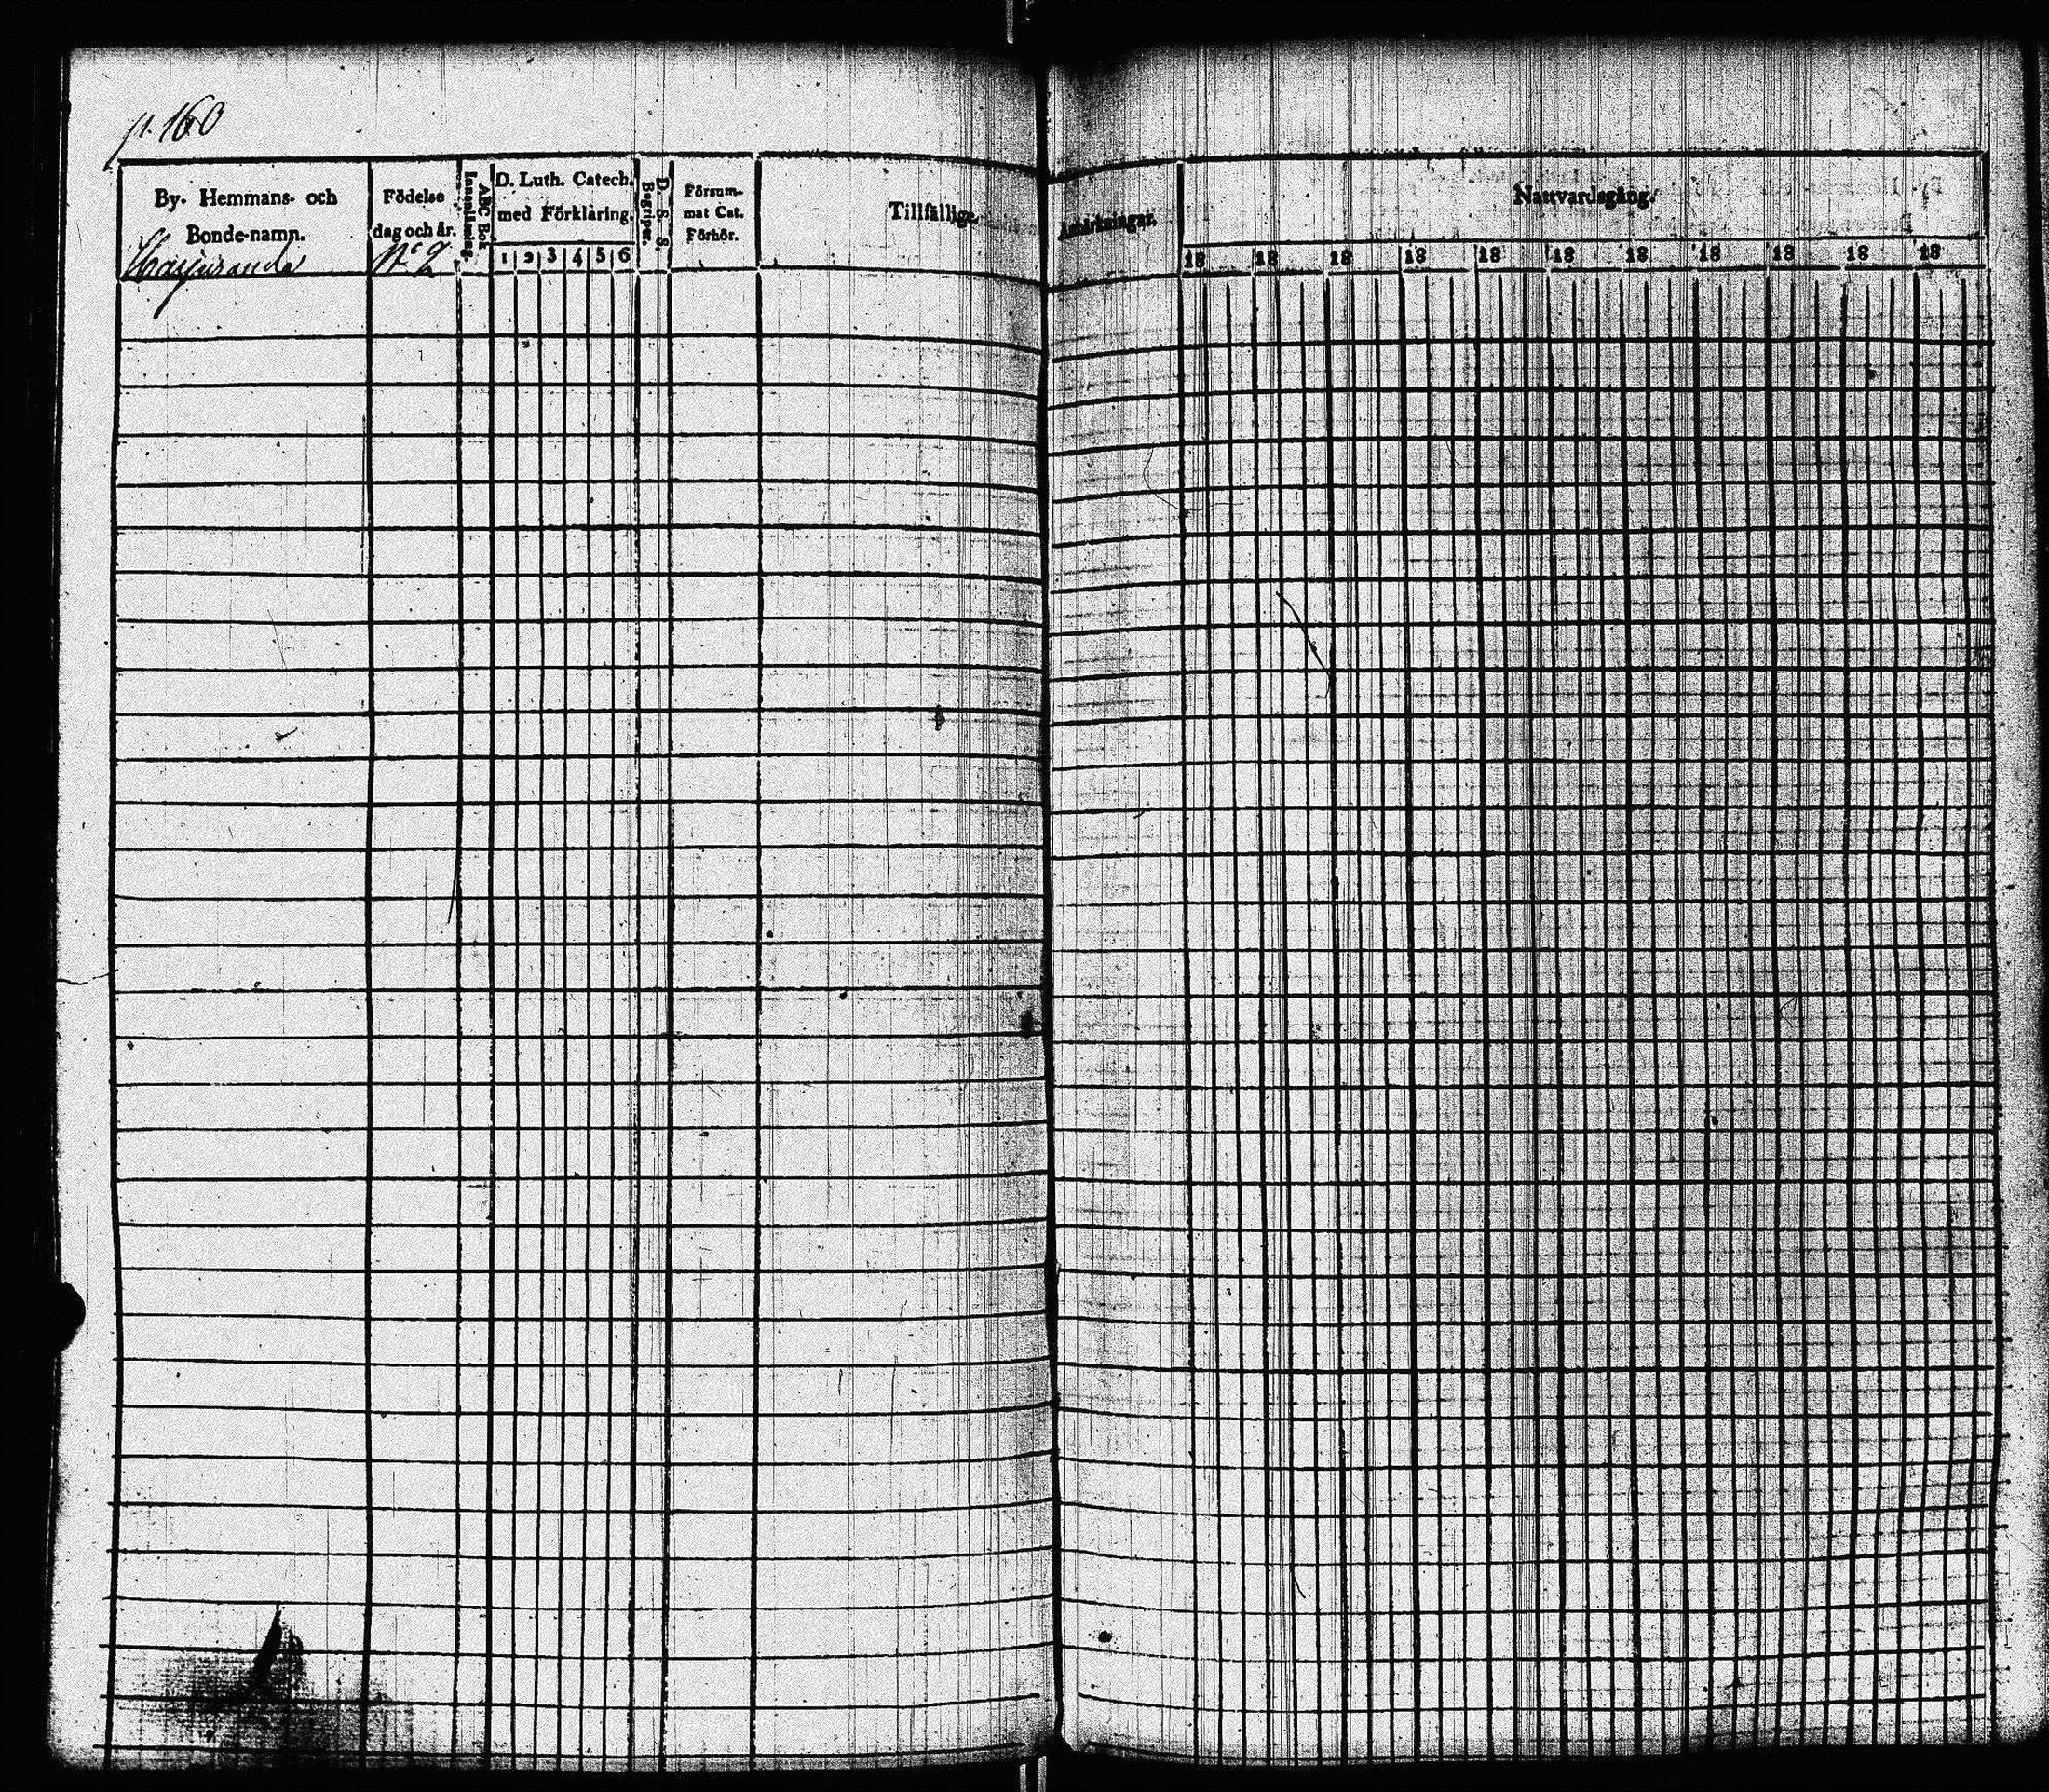 p. 160
By. Hemmans- och
Bonde-namn.
Födelse
dag och år.
ABC Bok
Innanläsning.
D. Luth. Catech.
med Förklaring.
1 2 3 4 5 6
D. S. S.
Begripa.
Försum-
mat Cat.
Förhör.
Tillfällige
Anmärkningar.
Nattvardsgång.
18 18 18 18 18 18 18 18 18 18 18
Harjuranda
N:o 2